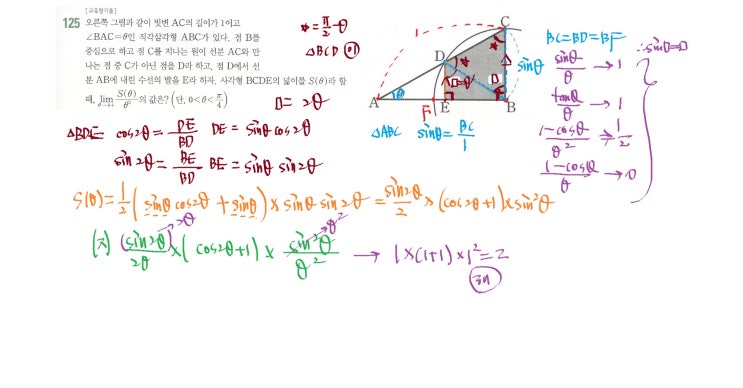 [교육청기출]
125 오른쪽 그림과 같이 빗변 AC의 길이가 1이고
∠BAC=θ인 직각삼각형 ABC가 있다. 점 B를
중심으로 하고 점 C를 지나는 원이 선분 AC와 만
나는 점 중 C가 아닌 점을 D라 하고, 점 D에서 선
분 AB에 내린 수선의 발을 E라 하자. 사각형 BCDE의 넓이를 S(θ)라 할
때, lim S(θ)/θ³의 값은? (단, 0<θ<π/4)
★=π/2-θ
△BCD 이
□=2θ
C
D
A
θ
E
B
F
★
★
□=2θ
□
sinθ
△ABC sinθ=BC/1
BC=BD=BF
sinθ/θ → 1
tanθ/θ → 1
1-cosθ/θ² → 1/2
1-cosθ/θ → 0
∴sin□=□
△BDE cos2θ=DE/BD DE=sinθcos2θ
sin2θ=BE/BD BE=sinθ sin2θ
S(θ)=1/2(sinθcos2θ+sinθ)×sinθ sin2θ=sin2θ/2×(cos2θ+1)×sin²θ
(저) (sin2θ)/2θ×(cos2θ+1)×sin²θ/θ² → 1×(1+1)×1²=2
2θ
θ²